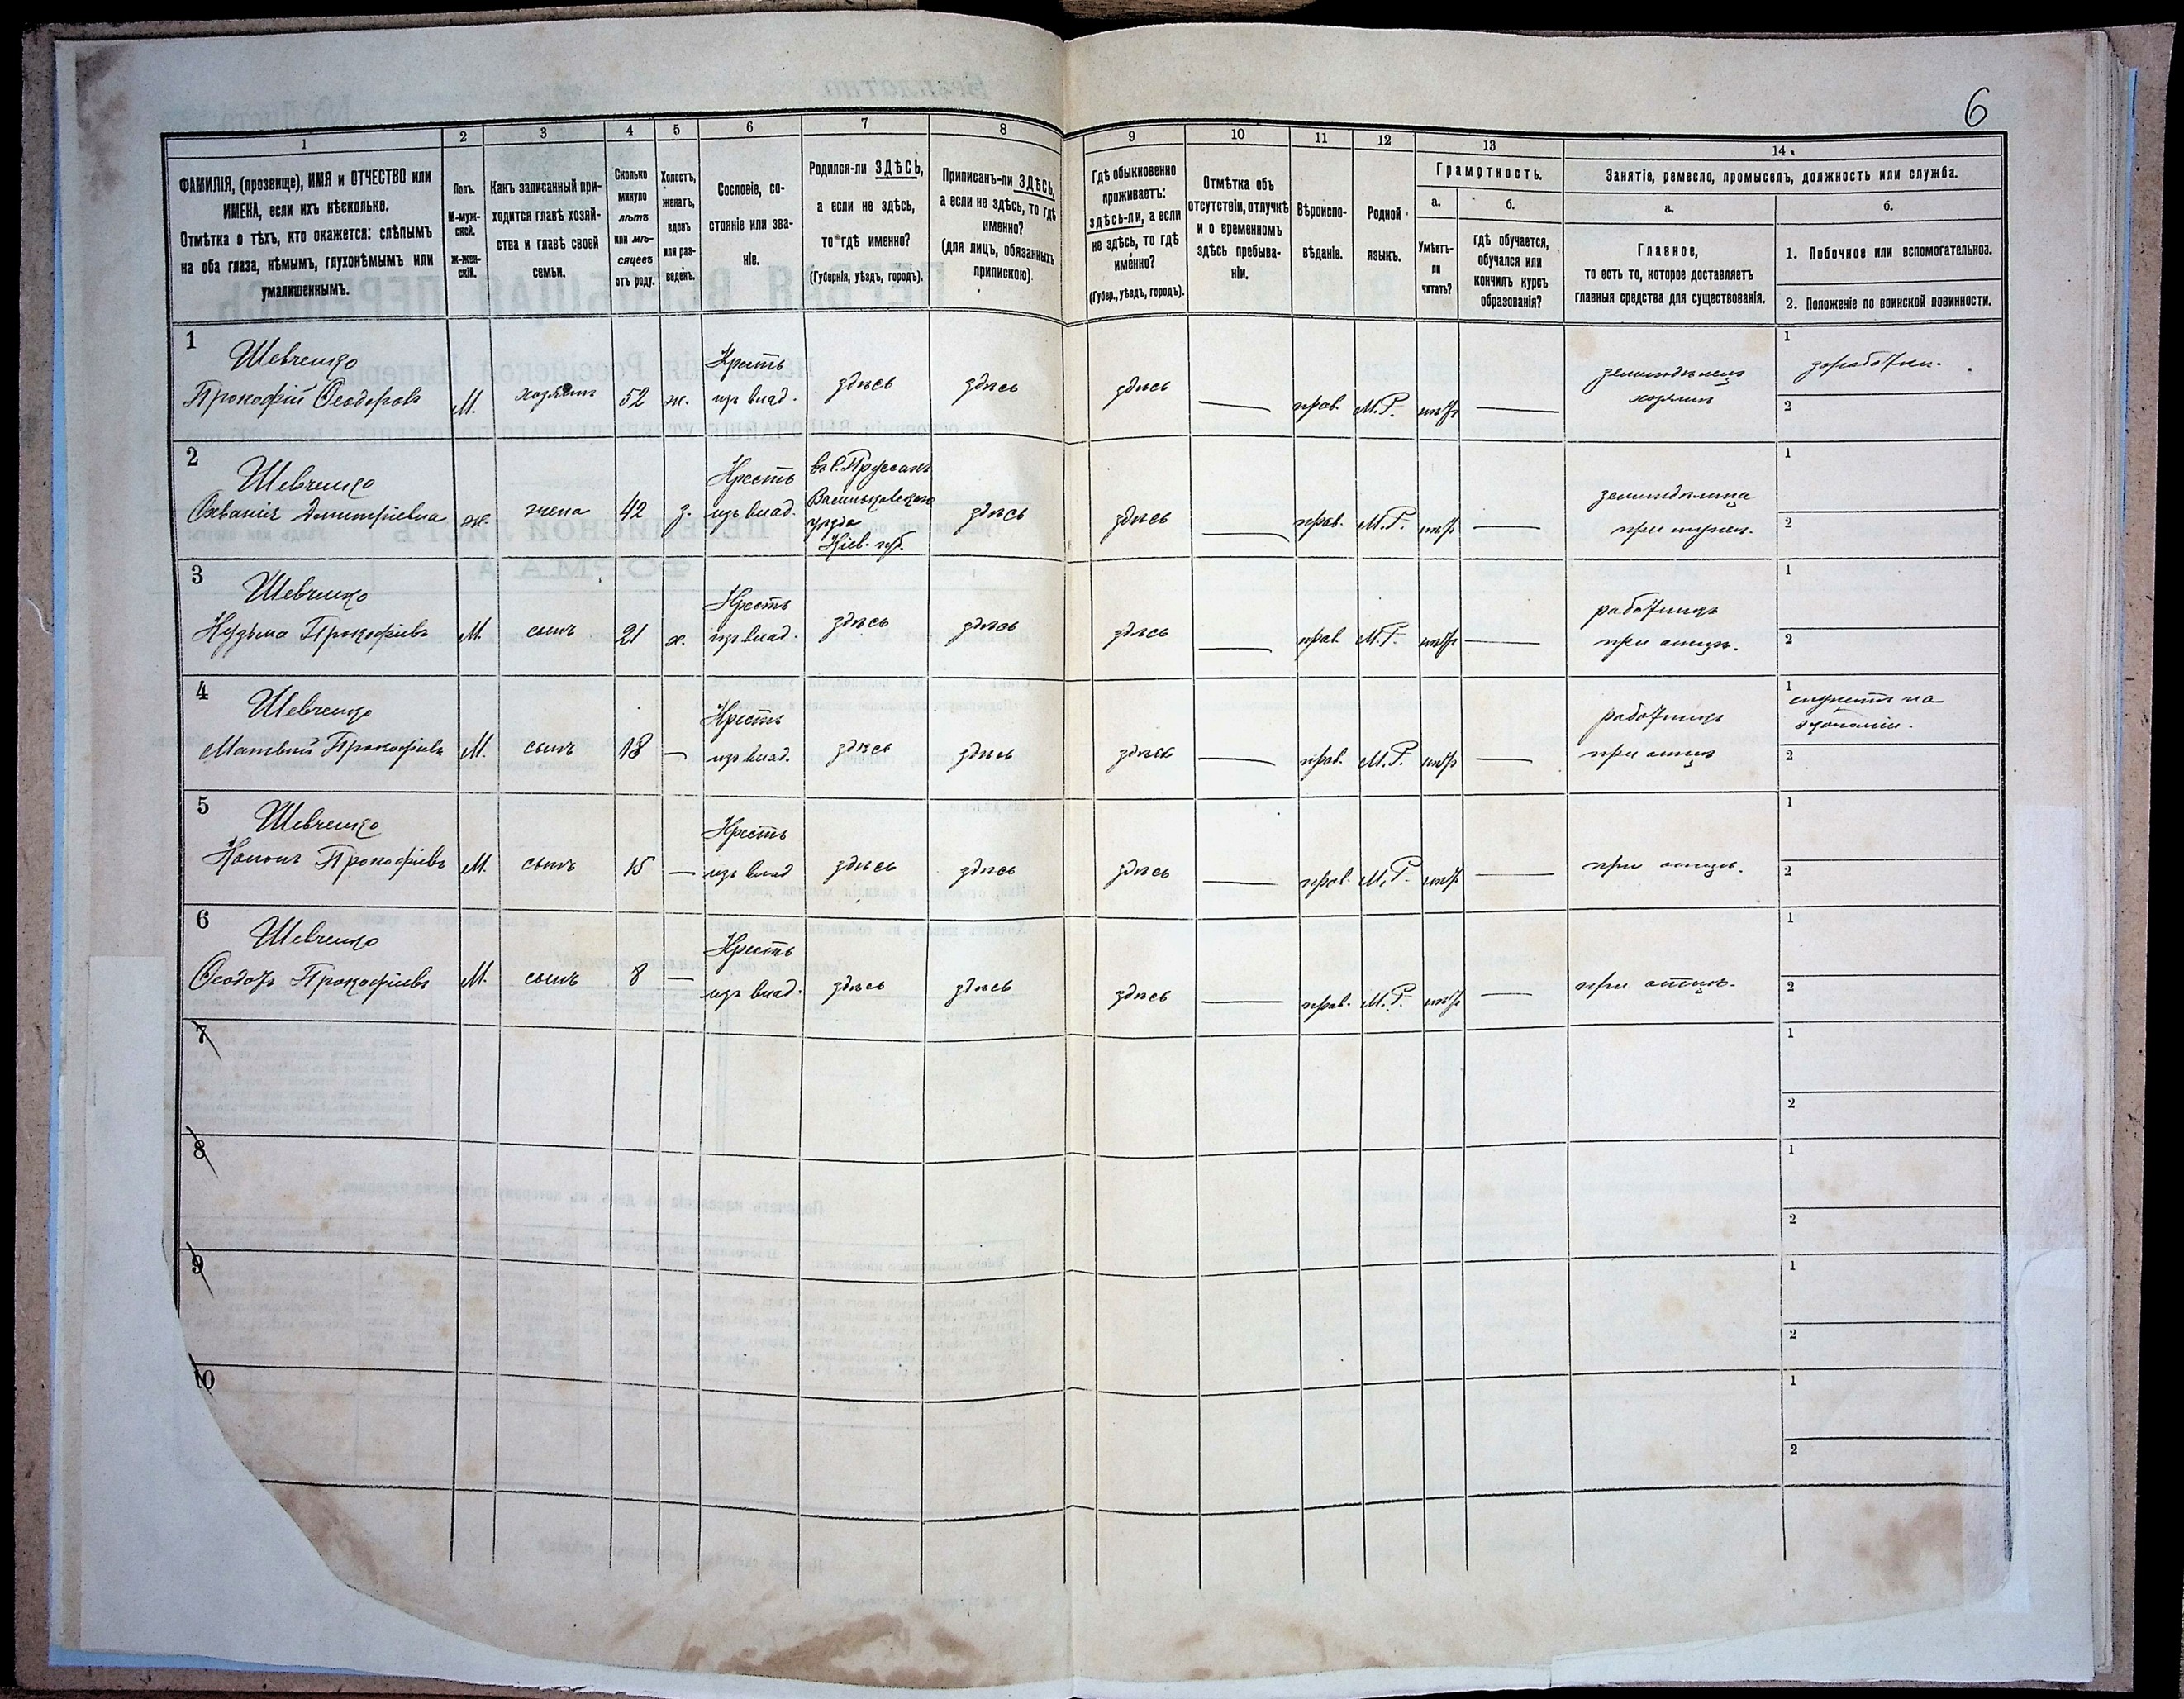 6
1
2
3
4
5
6
7
8
9
10
11
12
13
14.
ФАМИЛІЯ, (прозвище), ИМЯ и ОТЧЕСТВО или
ИМЕНА, если ихъ нѣсколько.
Отмѣтка о тѣхъ, кто окажется: слѣпымъ
на оба глаза, нѣмымъ, глухонѣмымъ или
умалишеннымъ.
Полъ.
М-муж-
ской.
Ж-жен-
скій.
Какъ записанный при-
ходится главѣ хозяй-
ства и главѣ своей
семьи.
Сколько
минуло
лѣтъ
или мѣ-
сяцевъ
отъ роду.
Холостъ,
женатъ,
вдовъ
или раз-
веденъ.
Сословіе, со-
стояніе или зва-
ніе.
Родился-ли ЗДѢСЬ,
а если не здѣсь,
то гдѣ именно?
(Губернія, уѣздъ, городъ).
Приписанъ-ли ЗДѢСЬ,
а если не здѣсь, то гдѣ
именно?
(для лицъ, обязанныхъ
припискою)
Гдѣ обыкновенно
проживаетъ:
здѣсь-ли, а если
не здѣсь, то гдѣ
именно?
(Губер., уѣздъ, городъ).
Отмѣтка объ
отсутствіи, отлучкѣ
и о временномъ
здѣсь пребыва-
ніи.
Вѣроиспо-
вѣданіе.
Родной
языкъ.
Грамотность.
а.
Умѣетъ-
ли
читать?
б.
гдѣ обучается,
обучался или
кончилъ курсъ
образованія?
Занятіе, ремесло, промыселъ, должность или служба.
а.
Главное,
то есть то, которое доставляетъ
главныя средства для существованія.
б.
1. Побочное или вспомогательное.
2. Положеніе по воинской повинности.
1
Шевченко
Прокофій Ѳеодоровъ
М.
хозяинъ
52
ж.
Крестъ
изъ влад.
здѣсь
здѣсь
здѣсь
прав.
М.Р.
нѣтъ
земледѣлецъ
хозяинъ
1
2
2
Шевченко
Димитріевна
ж.
жена
42
з.
Крестъ
изъ влад.
въ с. Пруссахъ
Васильковскаго
уѣзда
Кіев. губ.
здѣсь
здѣсь
прав.
М.Р.
нѣтъ
1
2
3
Шевченко
Кузьма Прокофіевъ
М.
сынъ
21
х.
Крестъ
изъ влад.
здѣсь
здѣсь
здѣсь
прав.
М.Р.
нѣтъ
работникъ
при отцѣ.
1
2
4
Шевченко
Матвѣй Прокофіевъ
М.
сынъ
18
Крестъ
изъ влад.
здѣсь
здѣсь
здѣсь
прав.
М.Р.
нѣтъ
работникъ
при отцѣ
1
2
5
Шевченко
Кононъ Прокофіевъ
М.
сынъ
15
Крестъ
изъ влад
здѣсь
здѣсь
здѣсь
прав.
М.Р.
нѣтъ
при отцѣ.
1
2
6
Шевченко
Ѳеодоръ Прокофіевъ
М.
сынъ
8
Крестъ
изъ влад.
здѣсь
здѣсь
здѣсь
прав.
М.Р.
нѣтъ
при отцѣ.
1
2
7
1
2
8
1
2
9
1
2
10
1
2